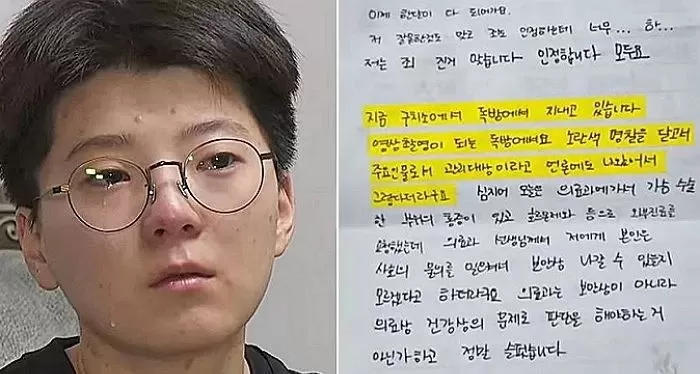 이제 한달이 다 되어가요.
저 잘못한것도 맞고 죄도 인정하는데 너무... 하...
저는 죄 진거 맞습니다 인정합니다 모두요
지금 구치소에서 독방에서 지내고 있습니다
영상촬영이 되는 독방에서요 노란색 명찰을 달고서
주요인물로서 관리대상이라고 언론에도 나와서
그렇다더라구요 심지어 오늘은 의료과에가서 가슴 수술
한 부위의 통증이 있고 호르몬제와 등으로 외부진료를
요청했는데 의료과 선생님께서 저에게 본인은
사회의 물의를 일으켜서 보안상 나갈 수 있을지
모르겠다고 하더라구요 의료과는 보안상이 아니라
의료상 건강상의 문제로 판단을 해야하는거
아닌가하고 정말 슬펐습니다